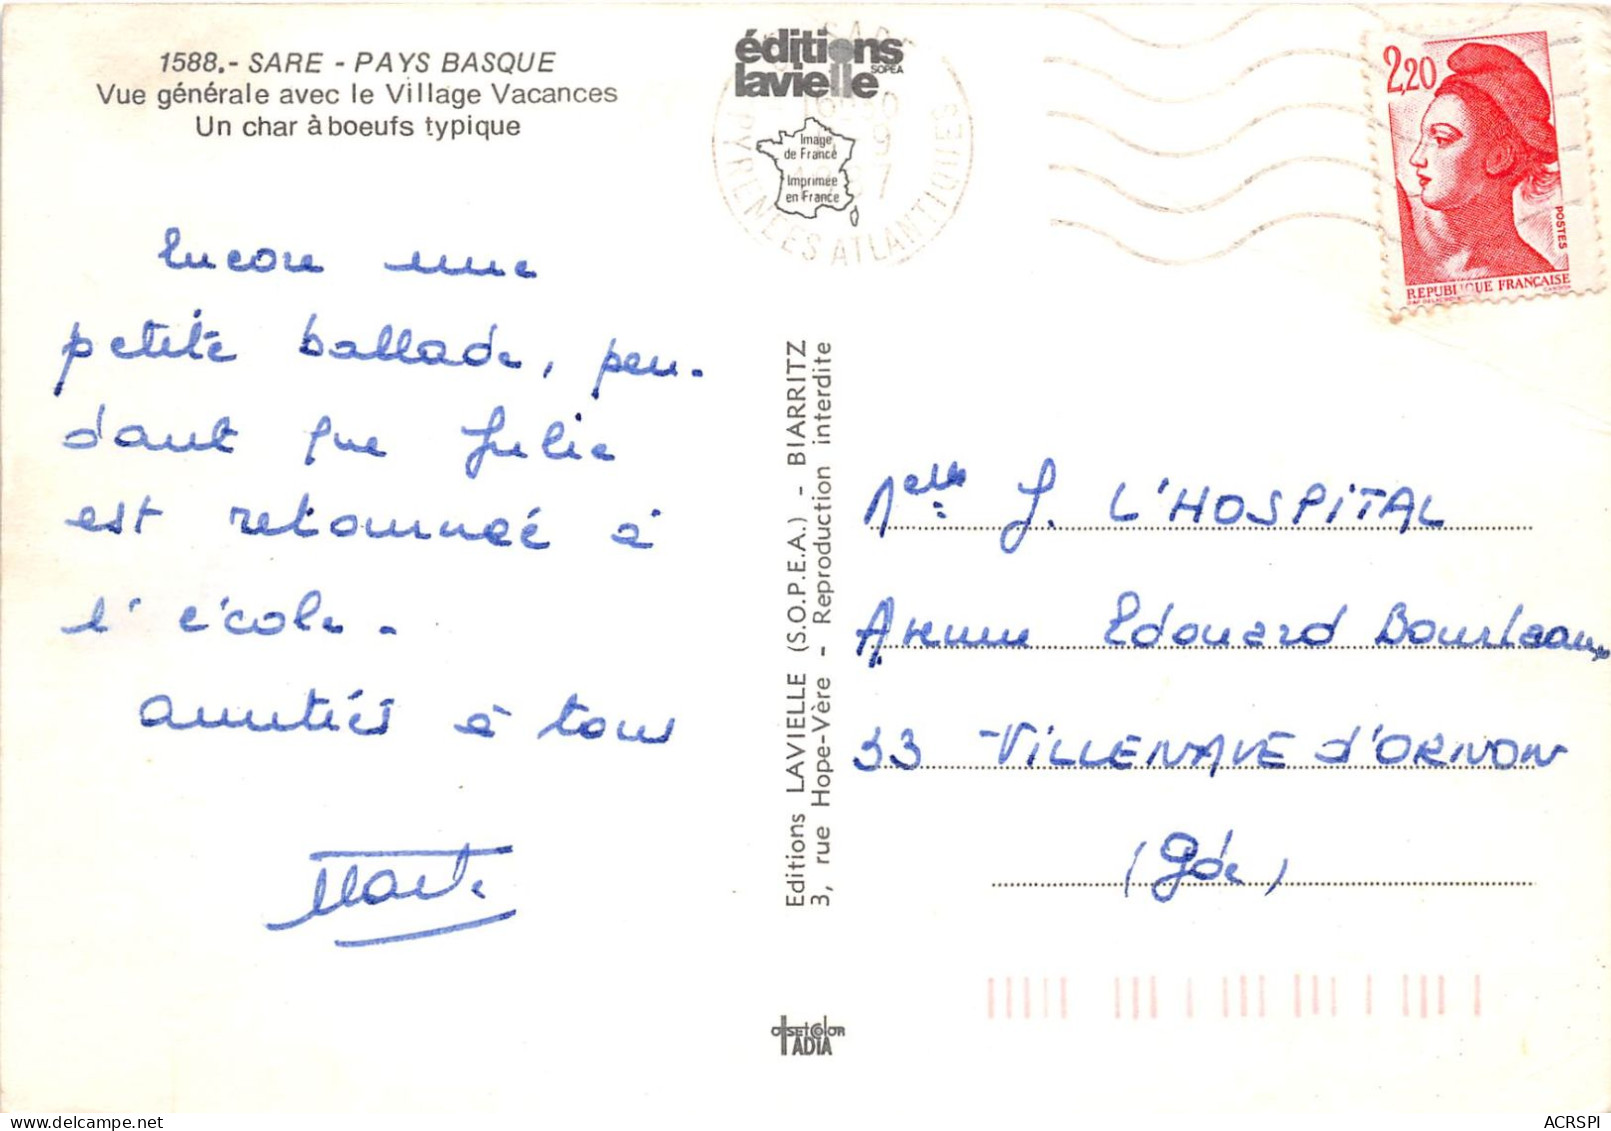 1588.- SARE - PAYS BASQUE
Vue générale avec le Village Vacances
Un char à boeufs typique
éditions
lavielle
SOPEA
Image
de France
Imprimée
en France
PYRENEES ATLANTIQUES
2,20
POSTES
REPUBLIQUE FRANÇAISE
Encore une
petite ballade, pen-
dant que Julie
est retournée à
l'école.
amitiés à tous
Marte
Editions LAVIELLE (S.O.P.E.A.) - BIARRITZ
3, rue Hope-Vère - Reproduction interdite
Melle J. L'HOSPITAL
Avenue Edouard Bourleaux
33 - VILLENAVE d'ORNON
(Gde)
OFFSET COLOR
IADIA
ACRSPI